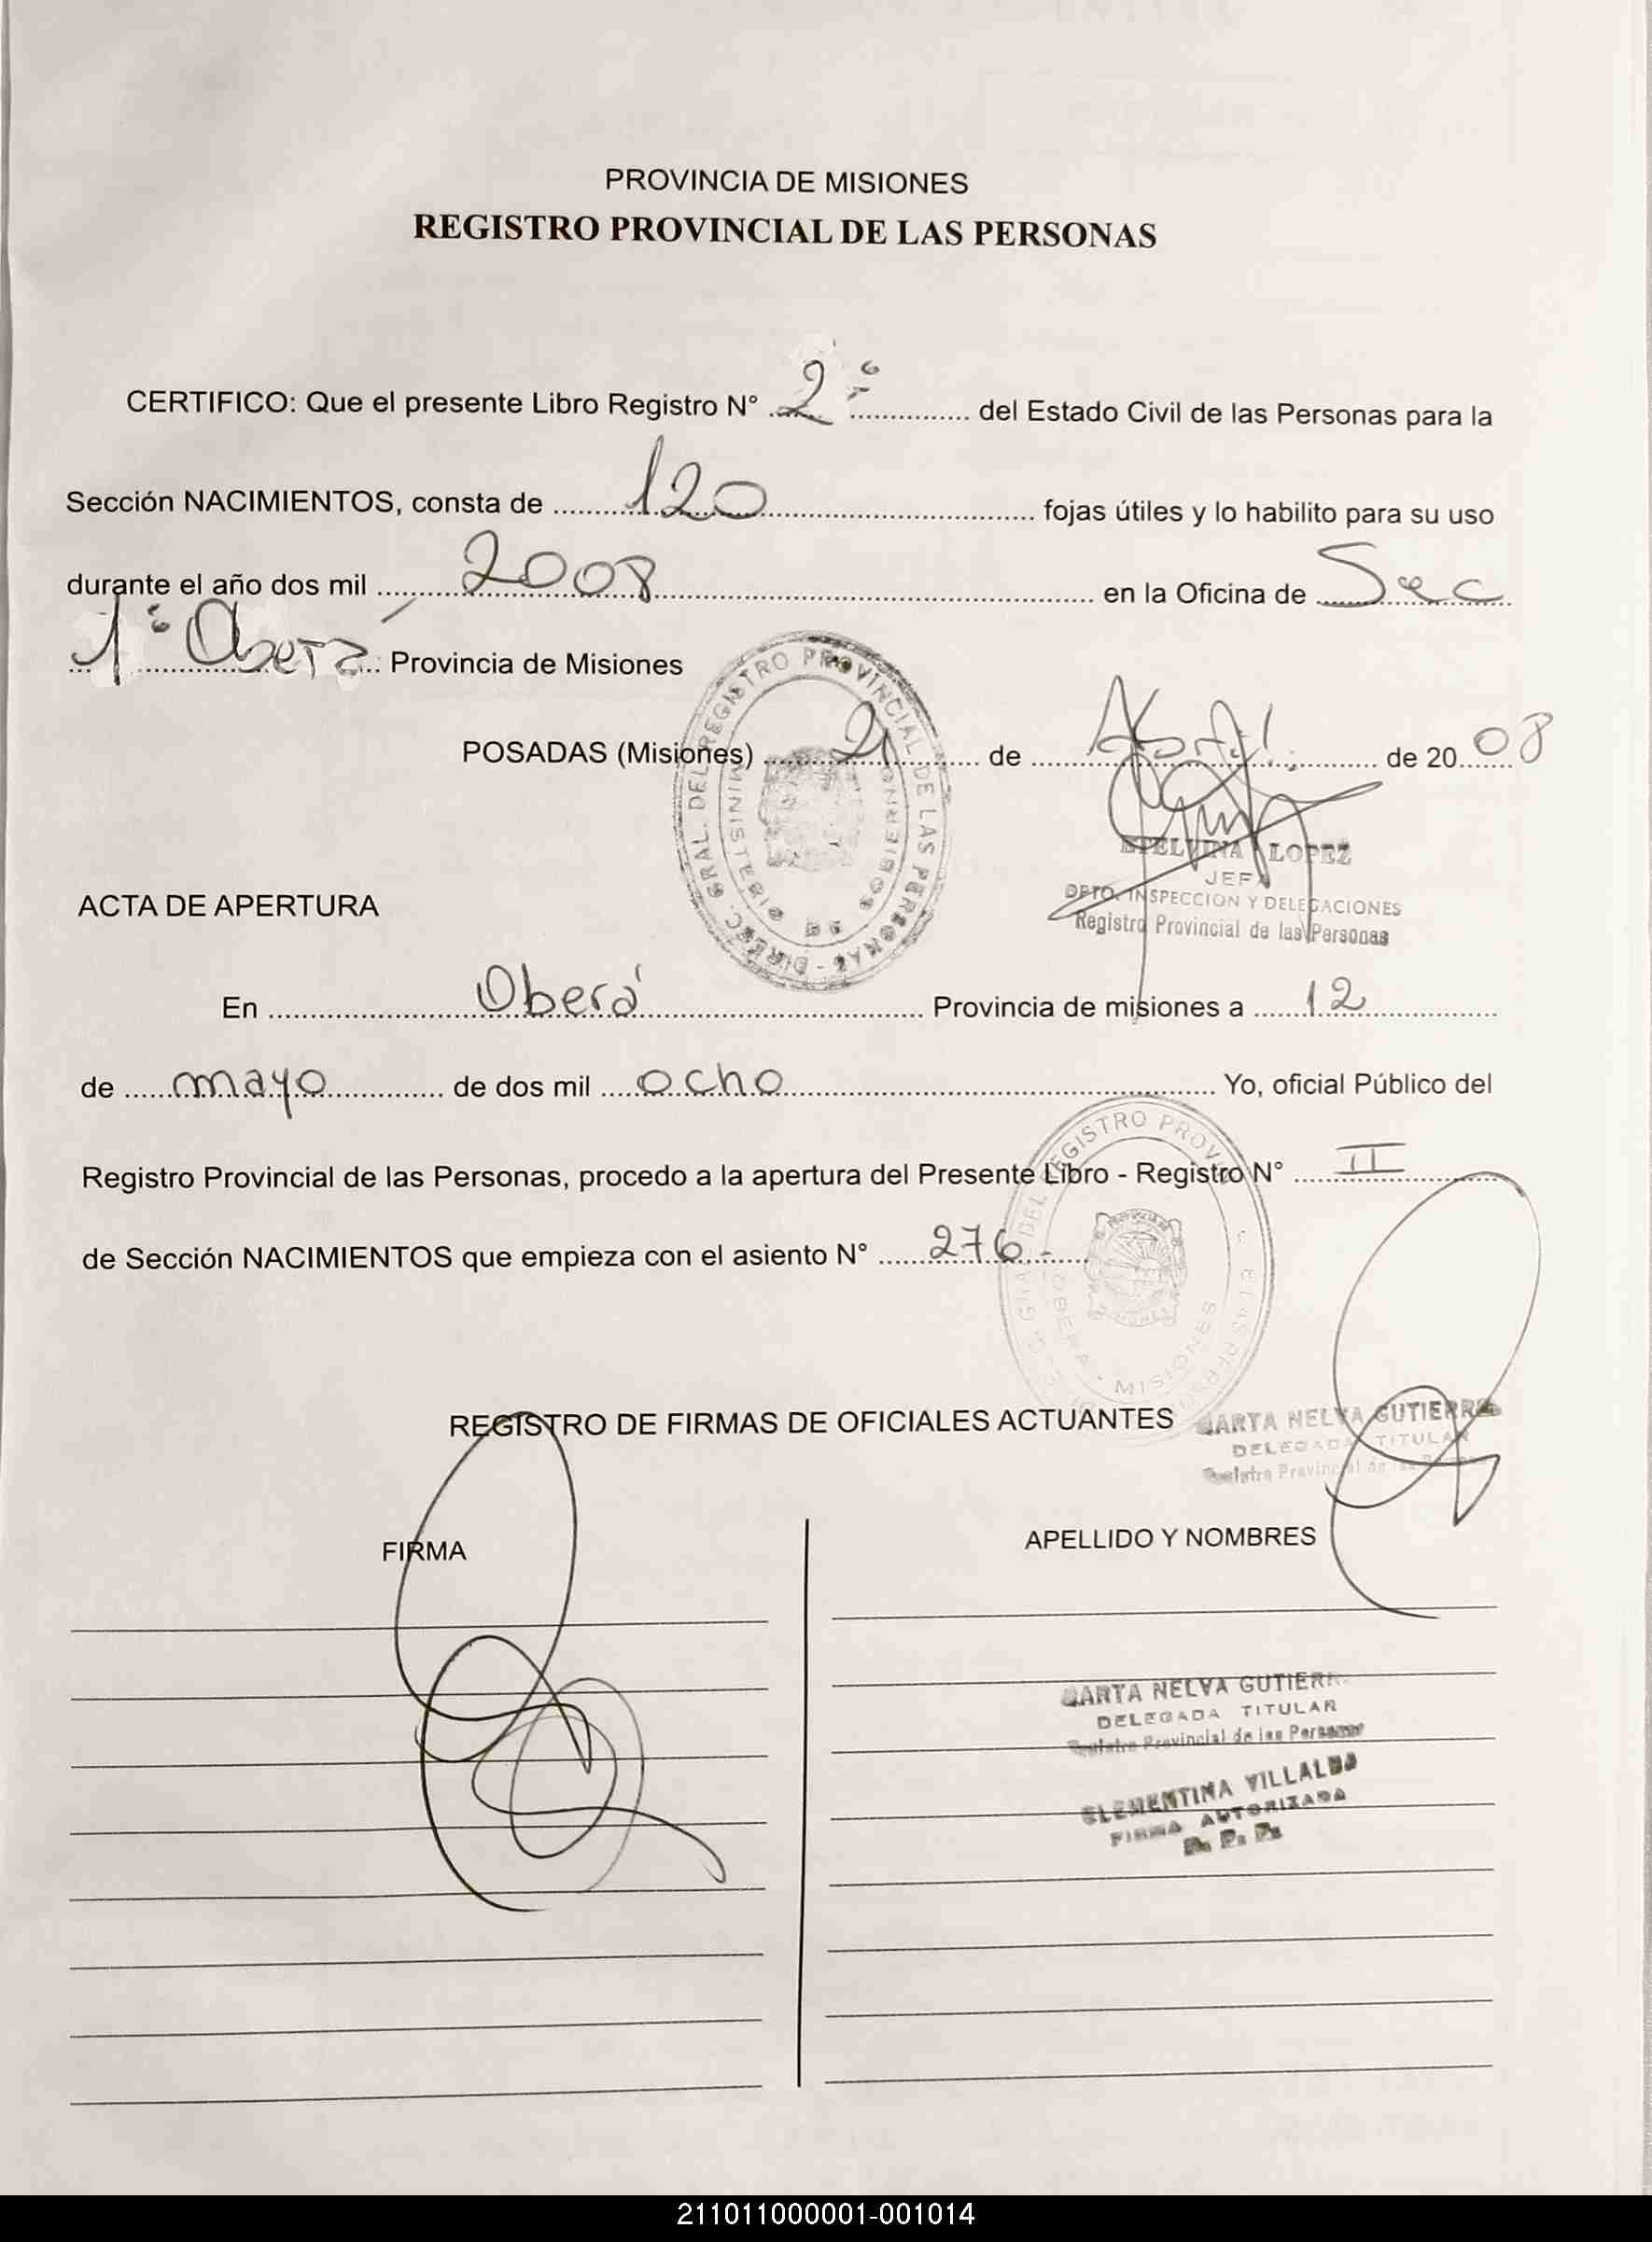 PROVINCIA DE MISIONES
REGISTRO PROVINCIAL DE LAS PERSONAS
CERTIFICO: Que el presente Libro Registro N° 2° del Estado Civil de las Personas para la
Sección NACIMIENTOS, consta de 120 fojas útiles y lo habilito para su uso
durante el año dos mil 2008 en la Oficina de Sec
1° Oberá Provincia de Misiones
POSADAS (Misiones) 21 de Abril de 2008
LOPEZ
JEFA
DPTO. INSPECCION Y DELEGACIONES
Registro Provincial de las Personas
ACTA DE APERTURA
En Oberá Provincia de misiones a 12
de mayo de dos mil ocho Yo, oficial Público del
Registro Provincial de las Personas, procedo a la apertura del Presente Libro - Registro N° II
de Sección NACIMIENTOS que empieza con el asiento N° 276-
OBERA - MISIONES
REGISTRO DE FIRMAS DE OFICIALES ACTUANTES
MARTA NELVA GUTIERRE
DELEGADA TITULAR
Registro Provincial de las
FIRMA
APELLIDO Y NOMBRES
MARTA NELVA GUTIERR
DELEGADA TITULAR
Registro Provincial de las Personas
CLEMENTINA VILLALBA
FIRMA AUTORIZADA
R. P. P.
211011000001-001014